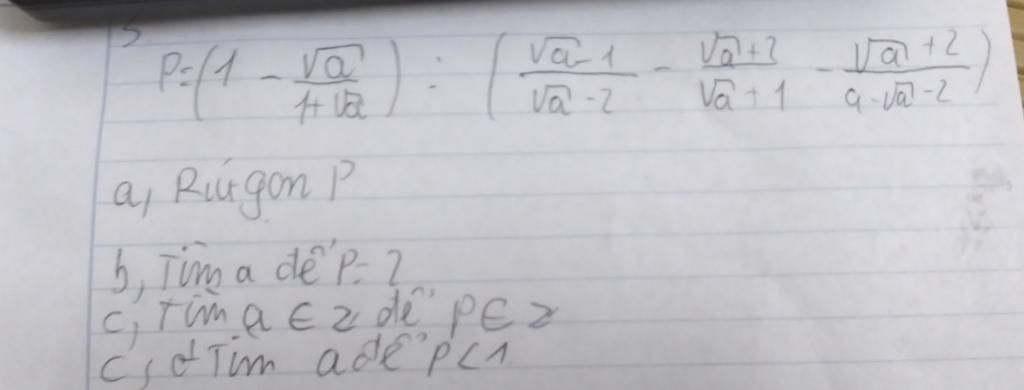 5.
P=(1 - √a/(1+√a)) : ((√a-1)/(√a-2) - (√a+2)/(√a+1) - (√a+2)/(a-√a-2))
a, Rút gọn P
b, Tìm a để P= 2
c, Tìm a ∈ Z để P ∈ Z
c, d Tìm a để P<1